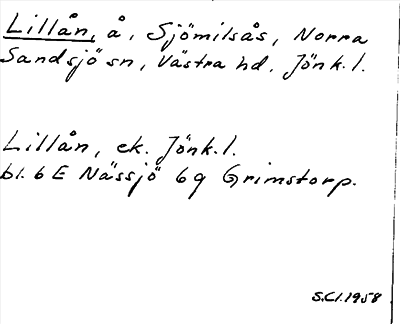 Lillån, å, Sjömilsås, Norra
Sandsjö sn, Västra hd. Jönk.l.
Lillån, ek. Jönk.l.
bl. 6E Nässjö 6g Grimstorp.
S.Cl.1958